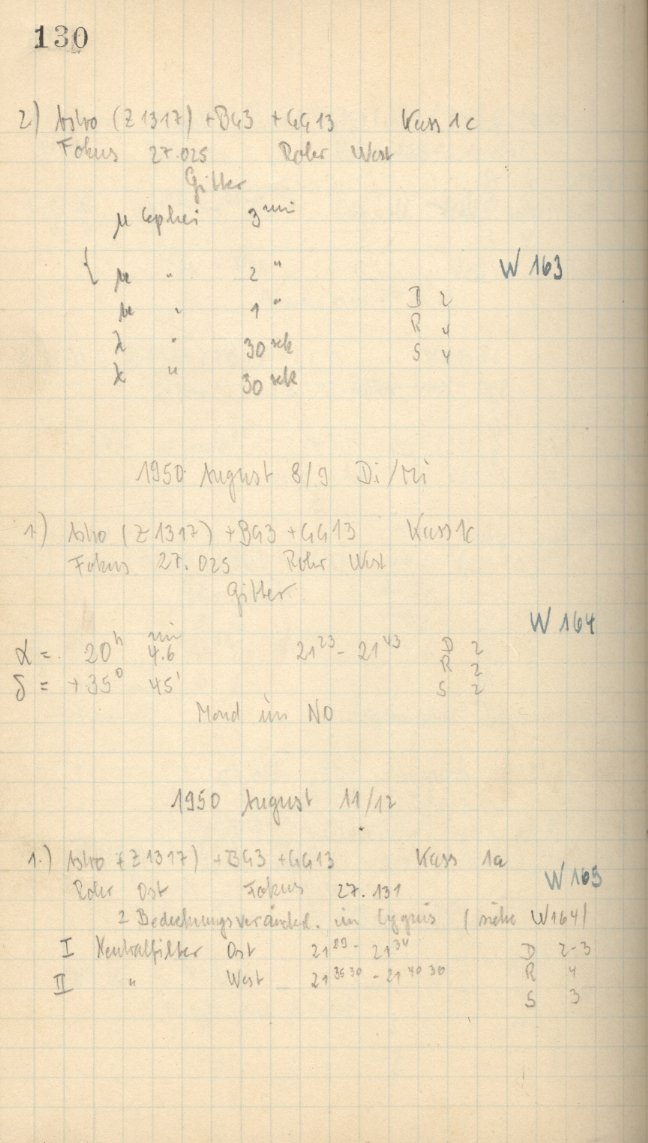 130
2) Astro (Z1317) + BG3 + GG13 Kass 1c
Fokus 27.025 Rohr West
Gitter
μ Cephei 3 min
W 163
μ " 2 "
μ " 1 " D 2
R 4
λ " 30 sek S 4
" 30 sek
1950 August 8/9 Di/Mi
1.) Astro (Z1317) + BG3 + GG13 Kass 1c
Fokus 27.025 Rohr West
Gitter
W 164
α = 20h 4.6 min 21 23 - 21 43 D 2
R 2
δ = +35° 45' S 2
Mond im NO
1950 August 11/12
1.) Astro (Z1317) + BG3 + GG13 Kass 1a
W 165
Rohr Ost Fokus 27.131
2 Bedeckungsveränderl. im Cygnus (siehe W164)
I Neutralfilter Ost 21 - 21 34 D 2-3
R 4
II " West 21 35 30 - 21 40 30
S 3